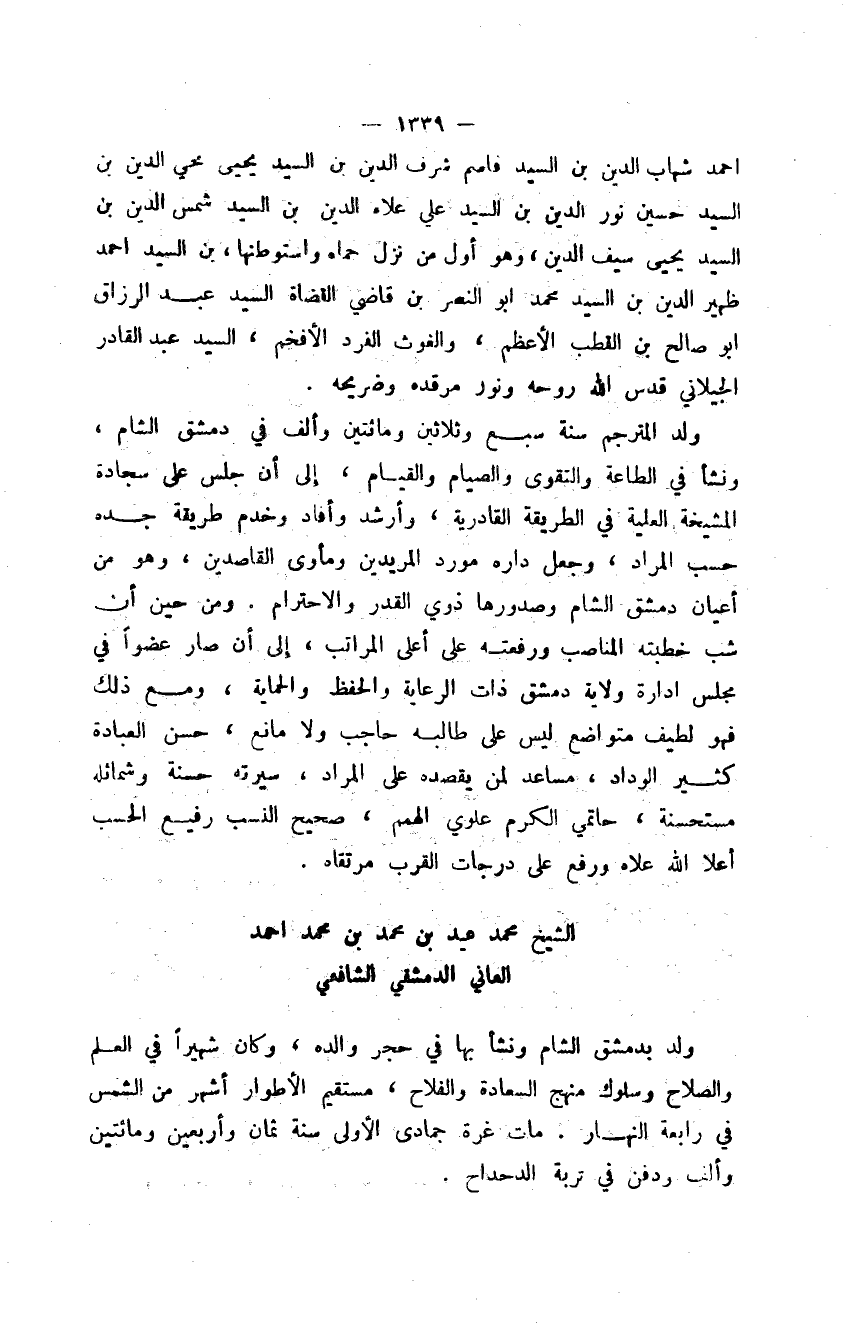 — ١٣٣٩ —
احمد شهاب الدين بن السيد قاسم شرف الدين بن السيد يحيى محي الدين بن
السيد حسين نور الدين بن السيد علي علاء الدين بن السيد شمس الدين بن
السيد يحيى سيف الدين ، وهو أول من نزل حماه واستوطنها ، بن السيد احمد
ظهير الدين بن السيد محمد ابو النصر بن قاضي القضاة السيد عبد الرزاق
ابو صالح بن القطب الأعظم ، والغوث الفرد الأفخم ، السيد عبد القادر
الجيلاني قدس الله روحه ونور مرقده وضريحه .
ولد المترجم سنة سبع وثلاثين ومائتين وألف في دمشق الشام ،
ونشأ في الطاعة والتقوى والصيام والقيام ، إلى أن جلس على سجادة
المشيخة العلية في الطريقة القادرية ، وأرشد وأفاد وخدم طريقة جده
حسب المراد ، وجعل داره مورد المريدين ومأوى القاصدين ، وهو من
أعيان دمشق الشام وصدورها ذوي القدر والاحترام . ومن حين أن
شب خطبته المناصب ورفعته على أعلى المراتب ، إلى أن صار عضواً في
مجلس ادارة ولاية دمشق ذات الرعاية والحفظ والحماية ، ومع ذلك
فهو لطيف متواضع ليس على طالبه حاجب ولا مانع ، حسن العبادة
كثير الوداد ، مساعد لمن يقصده على المراد ، سيرته حسنة وشمائله
مستحسنة ، حاتمي الكرم علوي الهمم ، صحيح النسب رفيع الحسب
أعلا الله علاه ورفع على درجات القرب مرتقاه .
الشيخ محمد عيد بن محمد بن محمد احمد
العاني الدمشقي الشافعي
ولد بدمشق الشام ونشأ بها في حجر والده ، وكان شهيراً في العلم
والصلاح وسلوك منهج السعادة والفلاح ، مستقيم الأطوار أشهر من الشمس
في رابعة النهار . مات غرة جمادى الأولى سنة ثمان وأربعين ومائتين
وألف ودفن في تربة الدحداح .